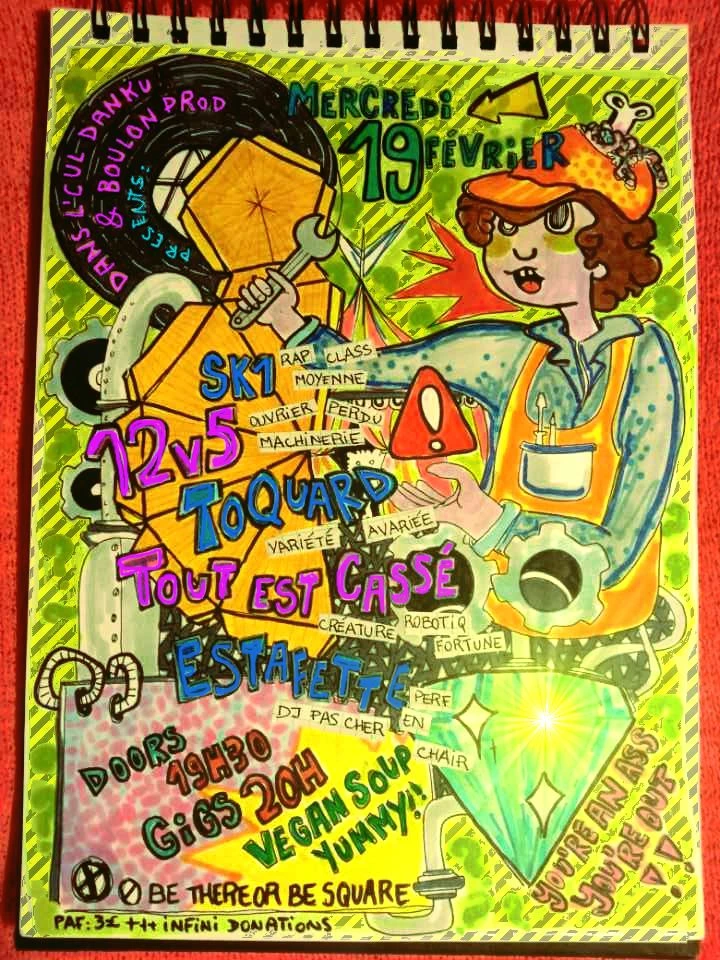 DANS L'CUL DANKU
& BOULON PROD
PRESENTS:
MERCREDI
19 FÉVRIER
SK1 RAP CLASS
MOYENNE
12V5 OUVRIER PERDU
MACHINERIE
TOQUARD
VARIÉTÉ AVARIÉE
TOUT EST CASSÉ
CRÉATURE ROBOTIQ
FORTUNE
ESTAFETTE PERF
DJ PAS CHER EN
CHAIR
DOORS
19H30
GIGS 20H
VEGAN SOUP
YUMMY!!
YOU'RE AN ASS
YOU'RE OUT
!!
BE THERE OR BE SQUARE
PAF: 3€ +++ INFINI DONATIONS